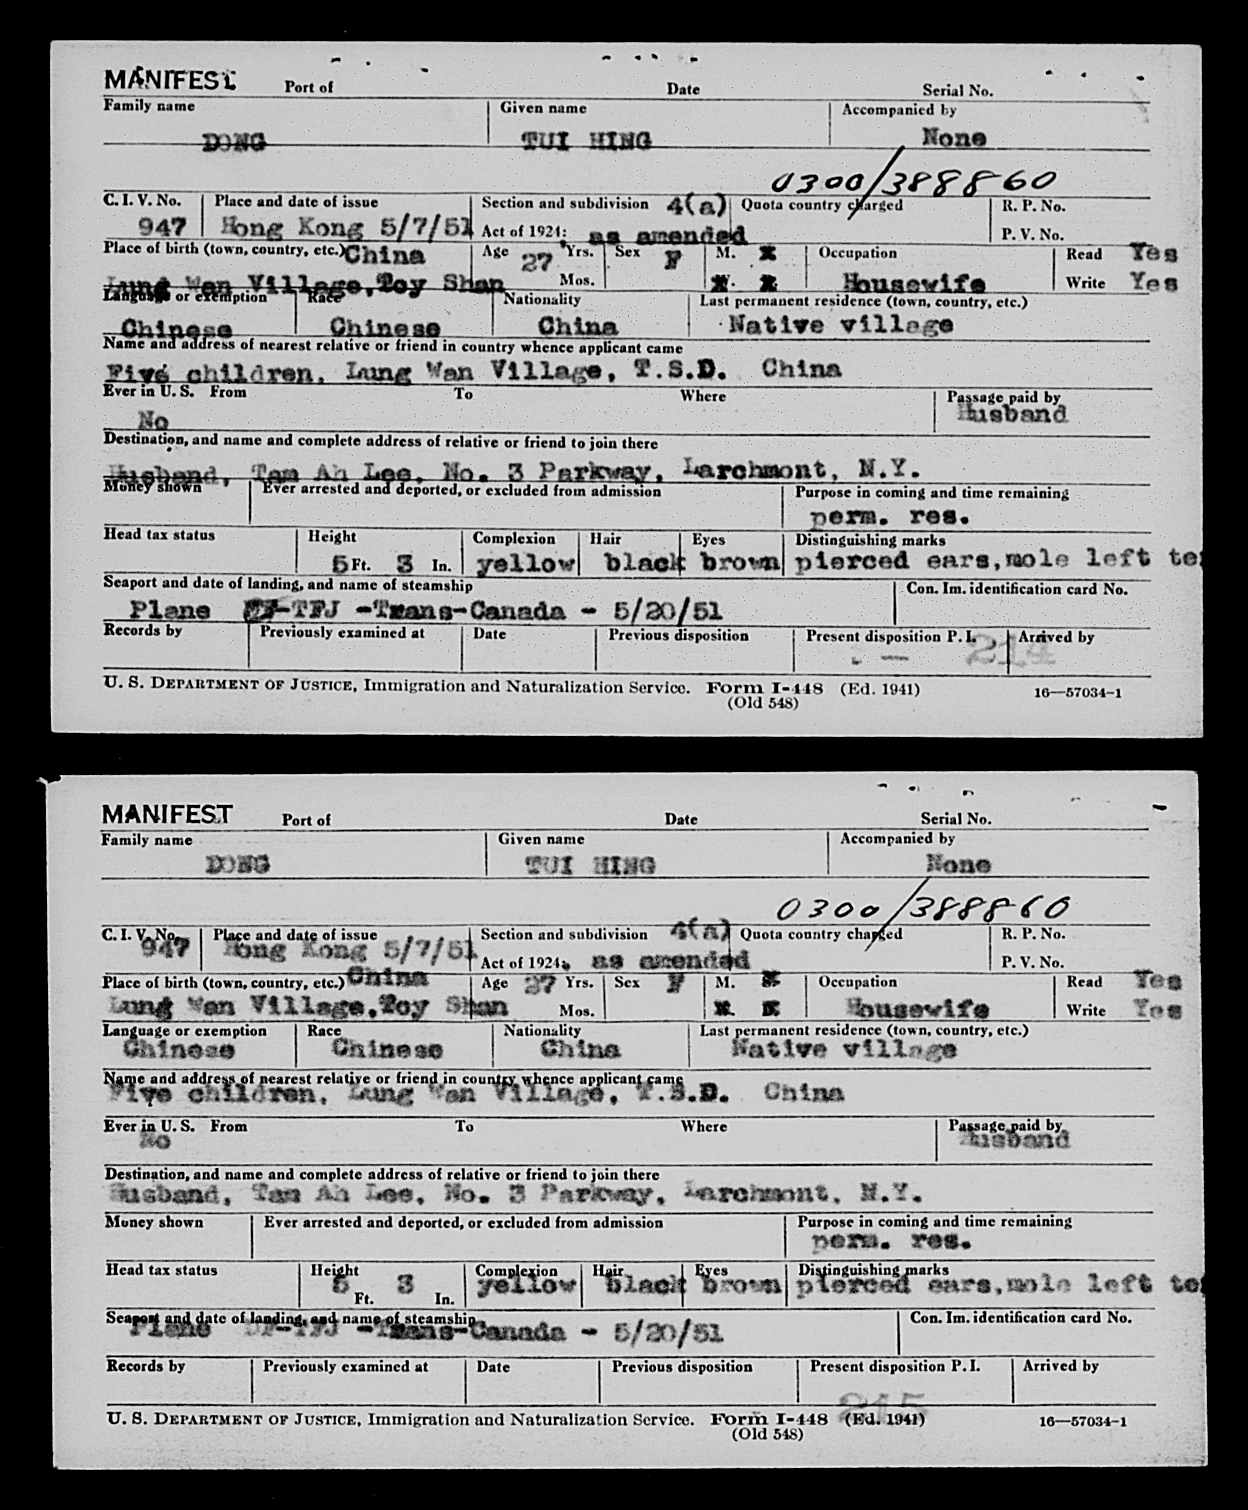 MANIFEST Port of Date Serial No.
Family name Given name Accompanied by
DONG TUI HING None
0300/388860
C. I. V. No. Place and date of issue Section and subdivision 4(a) Quota country charged R. P. No.
947 Hong Kong 5/7/51 Act of 1924: as amended P. V. No.
Place of birth (town, country, etc.) China Age 27 Yrs. Sex F M. X Occupation Read Yes
Lung Wan Village, Toy Shan Mos. W. X Housewife Write Yes
Language or exemption Race Nationality Last permanent residence (town, country, etc.)
Chinese Chinese China Native village
Name and address of nearest relative or friend in country whence applicant came
Five children, Lung Wan Village, T.S.D. China
Ever in U. S. From To Where Passage paid by
No Husband
Destination, and name and complete address of relative or friend to join there
Husband, Tam Ah Lee, No. 3 Parkway, Larchmont, N.Y.
Money shown Ever arrested and deported, or excluded from admission Purpose in coming and time remaining
perm. res.
Head tax status Height Complexion Hair Eyes Distinguishing marks
5 Ft. 3 In. yellow black brown pierced ears, mole left te
Seaport and date of landing, and name of steamship Con. Im. identification card No.
Plane CF-TFJ -Trans-Canada - 5/20/51
Records by Previously examined at Date Previous disposition Present disposition P. I. Arrived by
214
U. S. DEPARTMENT OF JUSTICE, Immigration and Naturalization Service. Form I-448 (Ed. 1941) 16—57034-1
(Old 548)
MANIFEST Port of Date Serial No.
Family name Given name Accompanied by
DONG TUI HING None
0300/388860
C. I. V. No. Place and date of issue Section and subdivision 4(a) Quota country charged R. P. No.
947 Hong Kong 5/7/51 Act of 1924: as amended P. V. No.
Place of birth (town, country, etc.) China Age 27 Yrs. Sex F M. X Occupation Read Yes
Lung Wan Village, Toy Shan Mos. X X Housewife Write Yes
Language or exemption Race Nationality Last permanent residence (town, country, etc.)
Chinese Chinese China Native village
Name and address of nearest relative or friend in country whence applicant came
Five children, Lung Wan Village, T.S.D. China
Ever in U. S. From To Where Passage paid by
No Husband
Destination, and name and complete address of relative or friend to join there
Husband, Tam Ah Lee, No. 3 Parkway, Larchmont, N.Y.
Money shown Ever arrested and deported, or excluded from admission Purpose in coming and time remaining
perm. res.
Head tax status Height Complexion Hair Eyes Distinguishing marks
5 Ft. 3 In. yellow black brown pierced ears, mole left te
Seaport and date of landing, and name of steamship Con. Im. identification card No.
Plane CF-TFJ -Trans-Canada - 5/20/51
Records by Previously examined at Date Previous disposition Present disposition P. I. Arrived by
215
U. S. DEPARTMENT OF JUSTICE, Immigration and Naturalization Service. Form I-448 (Ed. 1941) 16—57034-1
(Old 548)